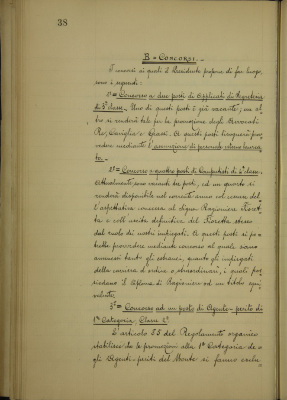 38
B = Concorsi.
I concorsi ai quali il Presidente propone di far luogo,
sono i seguenti:
1º= Concorso a due posti di Applicati di Segreteria
di 3ª classe. Uno di questi posti è già vacante, un al-
tro si renderà tale per la promozione degli
Caviglia e Grassi. A questi posti bisognerà prov-
vedere mediante l'ammissione di personale estraneo
2º= Concorso a quattro posti di Computisti di 2ª classe.
Attualmente, sono vacanti due posti, ed un quarto si
renderà disponibile nel corrente anno a causa del-
l'aspettativa concessa al Signor Ragioniere
e coll'uscita definitiva del stesso
dal ruolo dei nostri impiegati. A questi posti si po-
trebbe provvedere mediante concorso al quale siano
ammessi tanto gli estranei, quanto gli impiegati
della carriera d'ordine e straordinari, i quali pos-
siedano il diploma di Ragioniere od un titolo equi-
valente.
3º= Concorso ad un posto di Agente-perito di
1ª Categoria, Classe 2ª.
L'articolo 55 del Regolamento organico
stabilisce che le promozioni alla 1ª Categoria de-
gli Agenti-periti del Monte si fanno esclu-